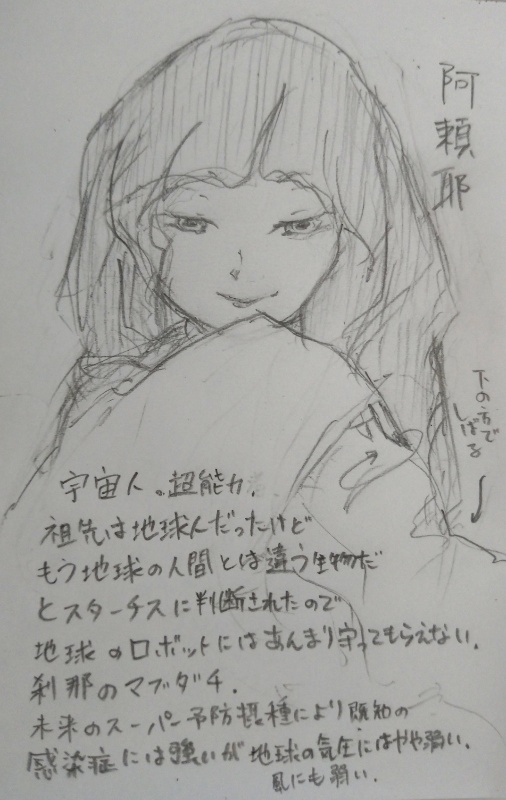 阿頼耶
下の方で
しばる
宇宙人。超能力者.
祖先は地球人だったけど
もう地球の人間とは違う生物だ
とスターチスに判断されたので
地球のロボットにはあんまり守ってもらえない.
刹那のマブダチ.
未来のスーパー予防接種により既知の
感染症には強いが地球の気圧にはやや弱い.
風にも弱い.